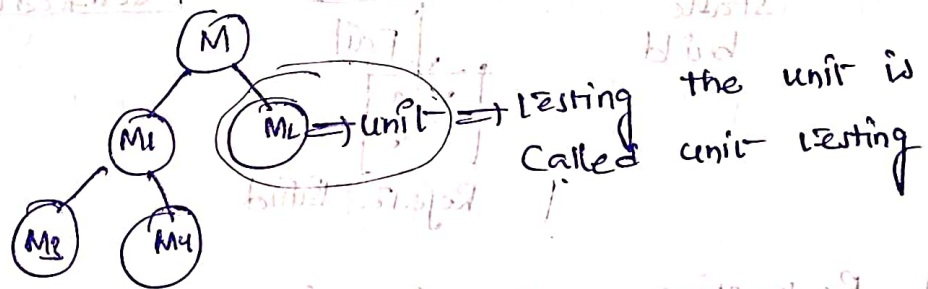 M
M1 M2 ⇒ unit ⇒ Testing the unit is
called unit testing
M3 M4